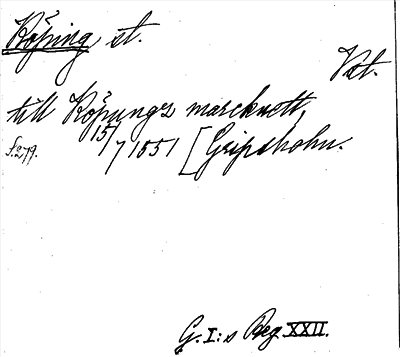 Köping st.
Vst.
till Köpungz marcknett,
f. 279. 15/7 1551 [Gripsholm.
G. I:s Reg XXII.